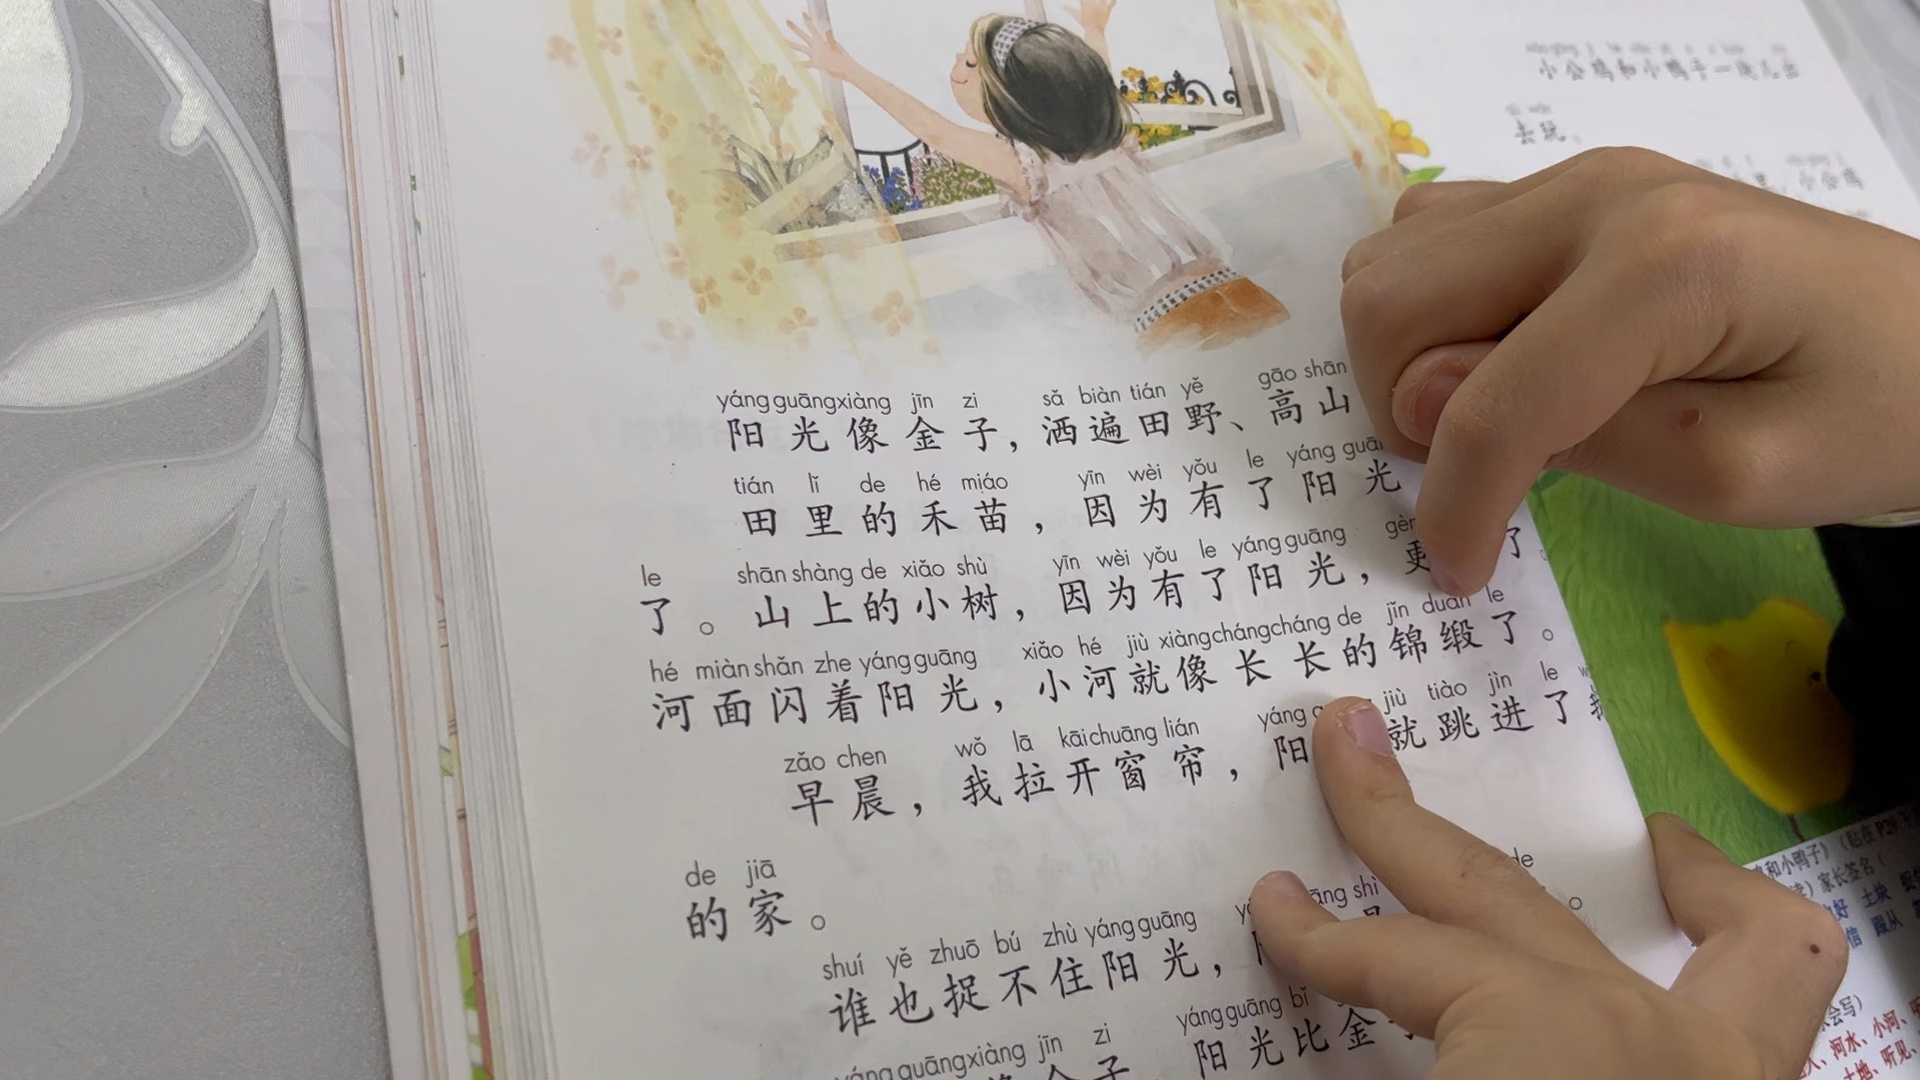 yáng guāng xiàng jīn zi sǎ biàn tián yě gāo shān
阳光像金子，洒遍田野、高山
tián lǐ de hé miáo yīn wèi yǒu le yáng
田里的禾苗，因为有了阳光
le shān shàng de xiǎo shù yīn wèi yǒu le yáng guāng
了。山上的小树，因为有了阳光，更 了。
hé miàn shǎn zhe yáng guāng xiǎo hé jiù xiàng cháng cháng de jǐn duàn le
河面闪着阳光，小河就像长长的锦缎了。
zǎo chen wǒ lā kāi chuāng lián yáng jiù tiào jìn le
早晨，我拉开窗帘，阳 就跳进了
de jiā
的家。
shuí yě zhuō bú zhù yáng guāng shì de
谁也捉不住阳光，
yáng guāng xiàng jīn zi yáng guāng bǐ
金子 阳光比金
小公鸡和小鸭子一块儿出
去玩。
小公鸡
和小鸭子》（贴在P29
家长签名（
土块
信 跟从
会写）
河水、小河、
土地、听见、